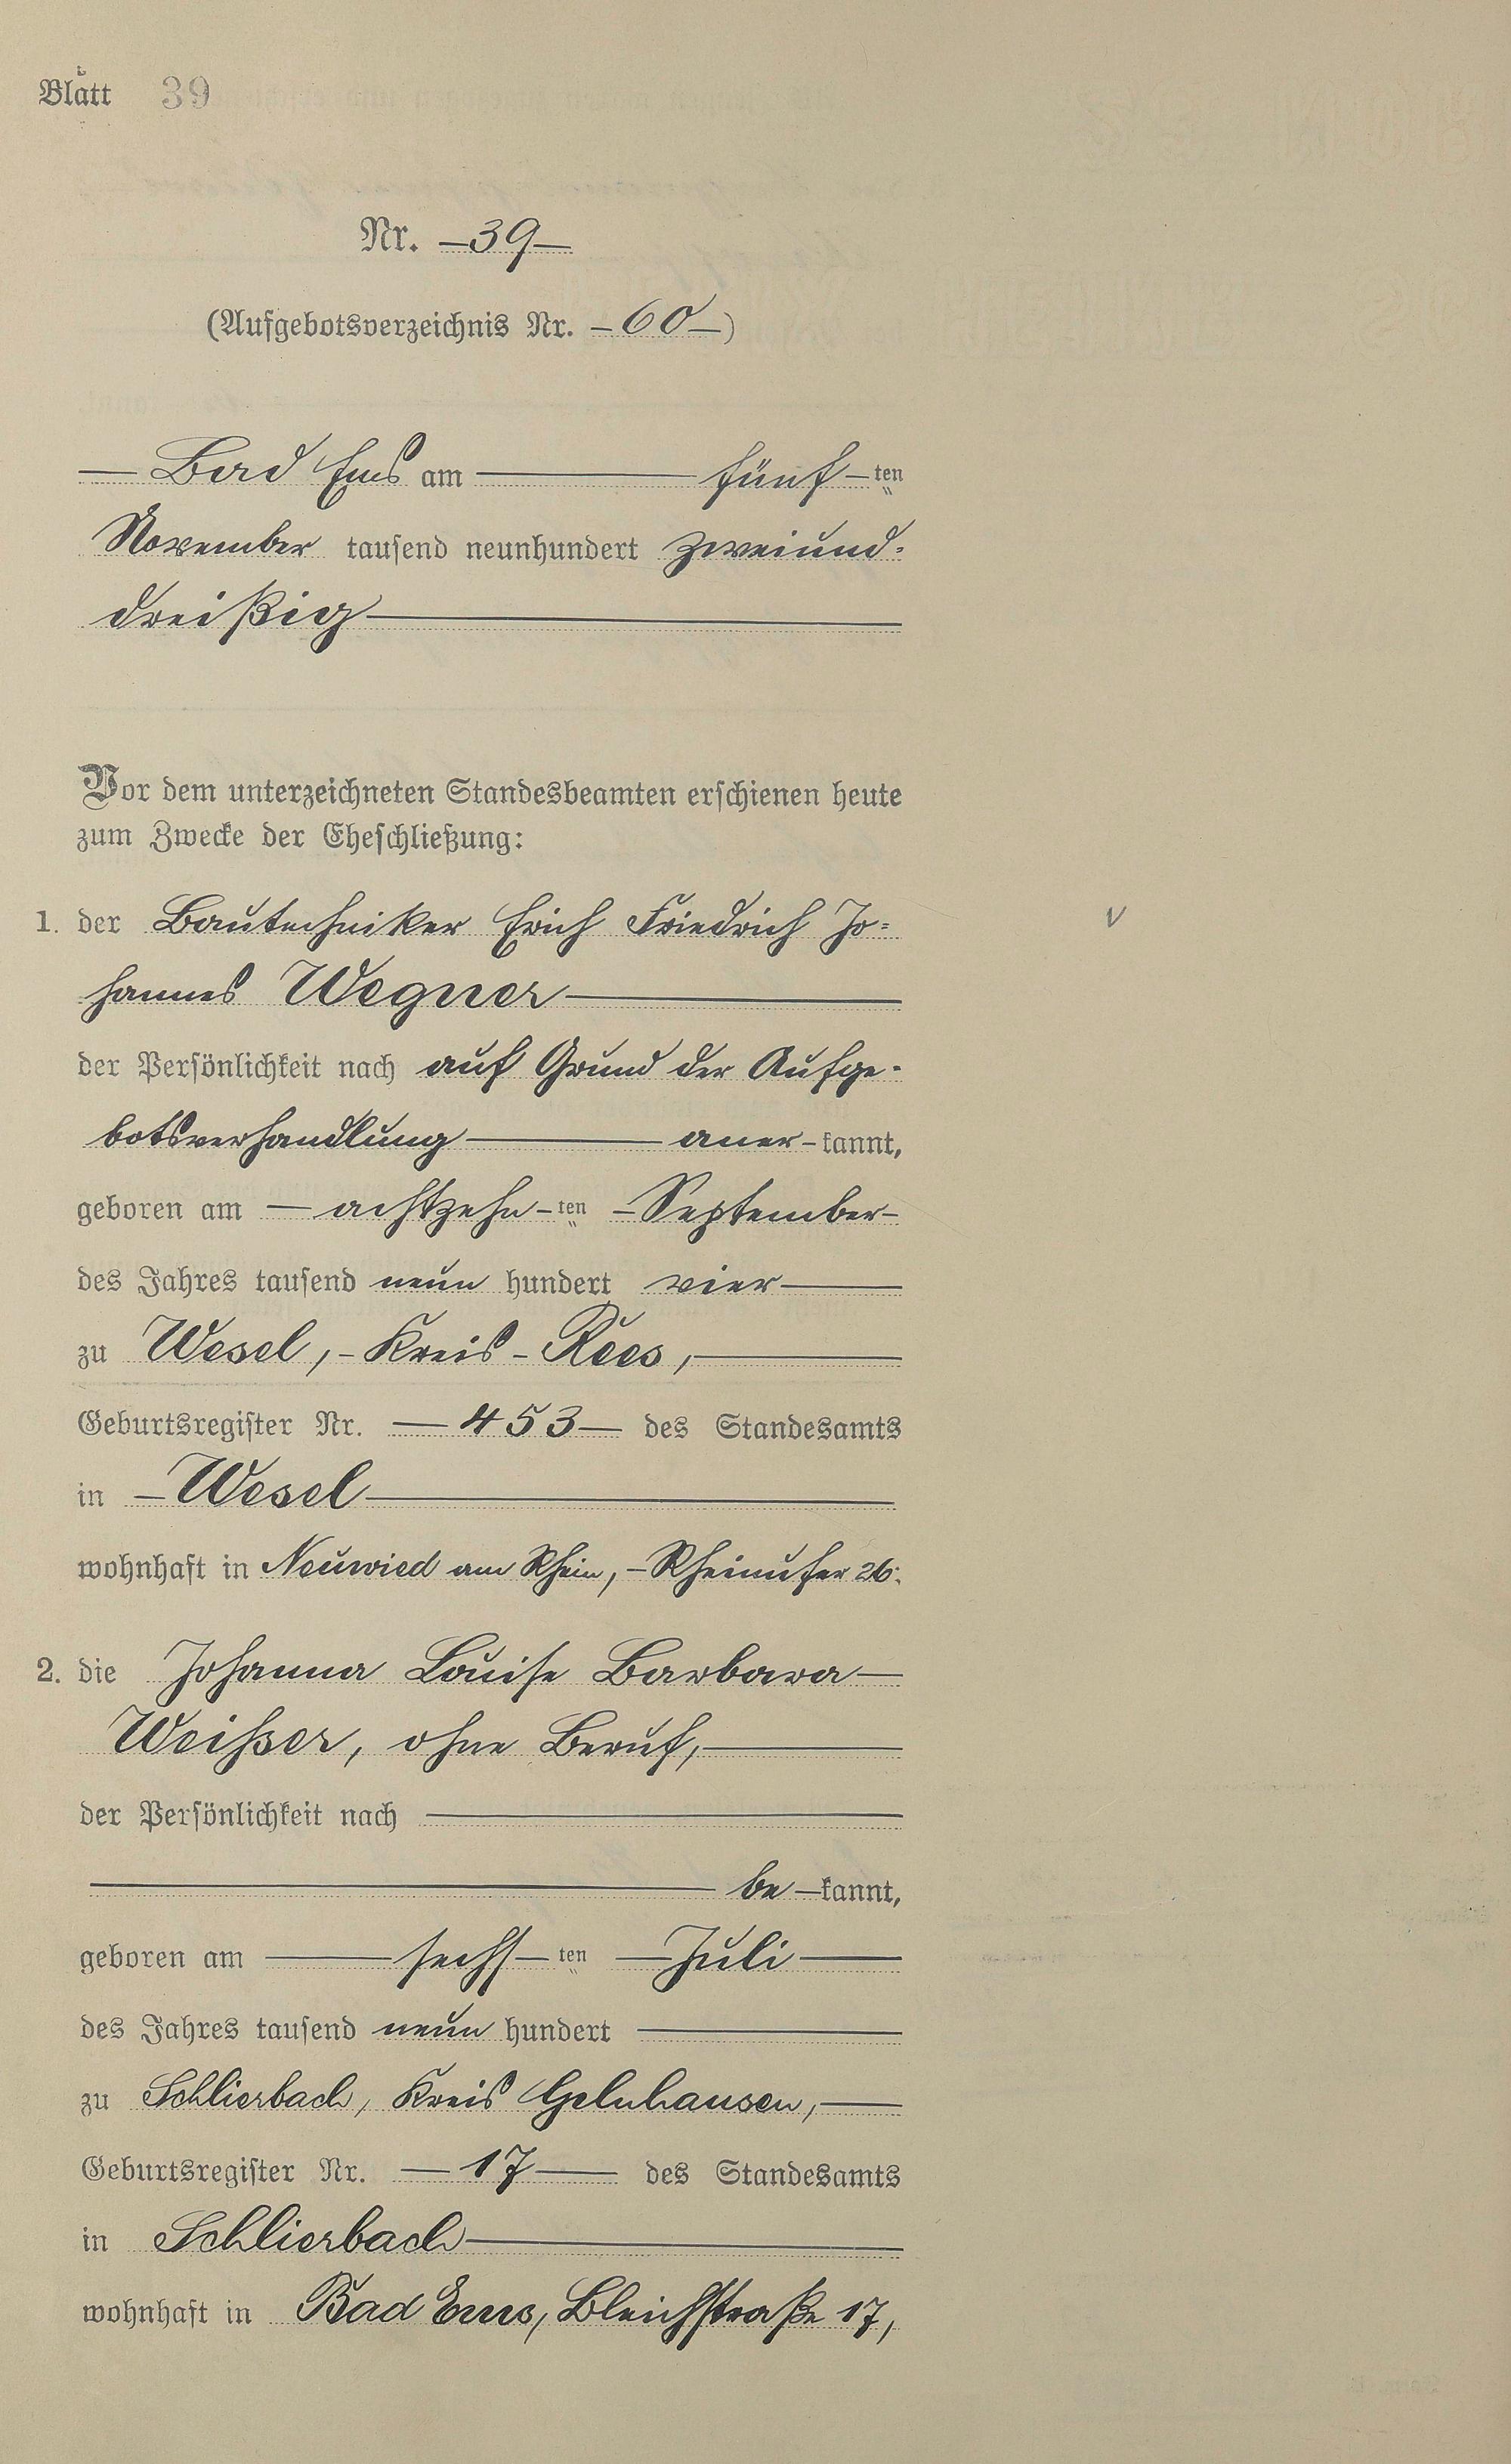 Blatt 39
Nr. —39—
(Aufgebotsverzeichnis Nr. —60—)
— Bad Ems am — fünf—ten
November tausend neunhundert zweiund=
dreißig —
Vor dem unterzeichneten Standesbeamten erschienen heute
zum Zwecke der Eheschließung:
1. der Bautechniker Erich Friedrich Jo=
hannes Wegner —
der Persönlichkeit nach auf Grund der Aufge-
botsverhandlung — aner-kannt,
geboren am — achtzehn-ten — September-
des Jahres tausend neun hundert vier —
zu Wesel, - Kreis - Rees, —
Geburtsregister Nr. — 453 — des Standesamts
in — Wesel —
wohnhaft in Neuwied am Rhein, - Rheinufer 26.
2. die Johanna Louise Barbara —
Weißer, ohne Beruf, —
der Persönlichkeit nach —
— be—kannt,
geboren am — sechs—ten — Juli —
des Jahres tausend neun hundert —
zu Schlierbach, Kreis Gelnhausen, —
Geburtsregister Nr. — 17 — des Standesamts
in Schlierbach —
wohnhaft in Bad Ems, Bleichstraße 17,